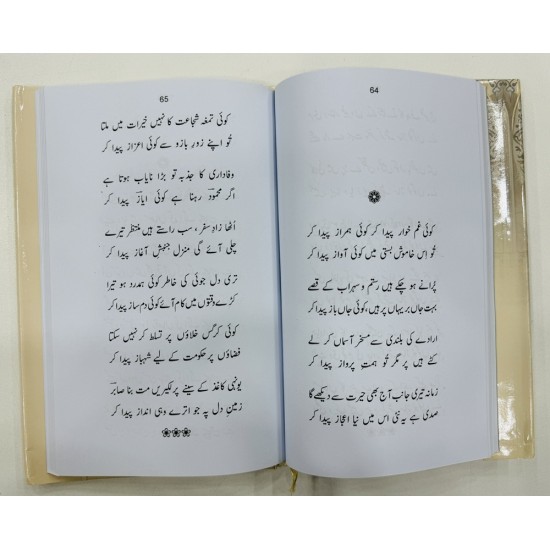 64
کوئی غم خوار پیدا کر کوئی ہمراز پیدا کر
تُو اس خاموش بستی میں کوئی آواز پیدا کر
پرانے ہو چکے ہیں رستم و سہراب کے قصے
بہت جاں بر یہاں پر ہیں، کوئی جاں باز پیدا کر
ارادے کی بلندی سے مسخر آسماں کر لے
کٹے ہیں پر مگر تُو ہمتِ پرواز پیدا کر
زمانہ تیری جانب آج بھی حیرت سے دیکھے گا
صدی ہے یہ نئی اس میں نیا اعجاز پیدا کر
65
کوئی تمغہ شجاعت کا نہیں خیرات میں ملتا
تُو اپنے زورِ بازو سے کوئی اعزاز پیدا کر
وفاداری کا جذبہ تو بڑا نایاب ہوتا ہے
اگر محمود رہنا ہے کوئی ایاز پیدا کر
اُٹھا زادِ سفر، سب راستے ہیں منتظر تیرے
چلی آئے گی منزل جنبشِ آغاز پیدا کر
تری دل جوئی کی خاطر کوئی ہمدرد ہو تیرا
کڑے وقتوں میں کام آئے کوئی دم ساز پیدا کر
کوئی کرگس خلاؤں پر تسلط کر نہیں سکتا
فضاؤں پر حکومت کے لیے شہباز پیدا کر
یونہی کاغذ کے سینے پر لکیریں مت بنا صابر
زمینِ دل پہ جو اترے وہی انداز پیدا کر